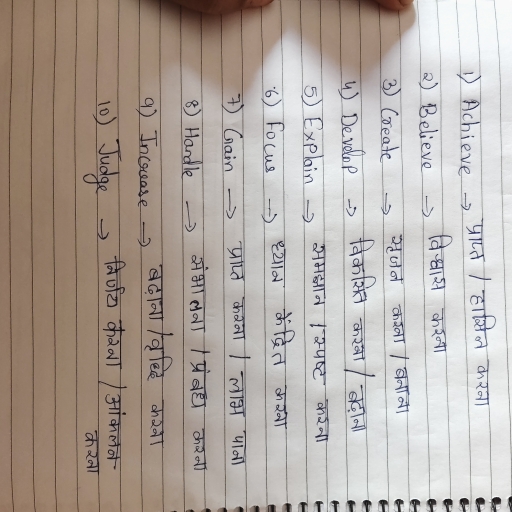 1) Achieve → प्राप्त / हासिल करना
2) Believe → विश्वास करना
3) Create → सृजन करना / बनाना
4) Develop → विकसित करना / बढ़ाना
5) Explain → समझाना / स्पष्ट करना
6) Focus → ध्यान केंद्रित करना
7) Gain → प्राप्त करना / लाभ पाना
8) Handle → संभालना / प्रबंध करना
9) Increase → बढ़ाना / वृद्धि करना
10) Judge → निर्णय करना / आंकलन
करना